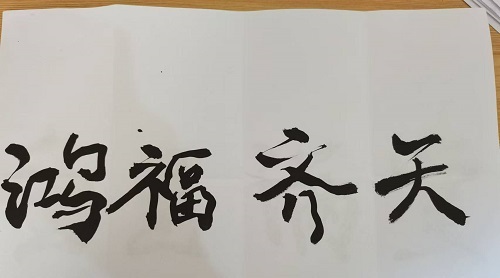 鸿福齐天